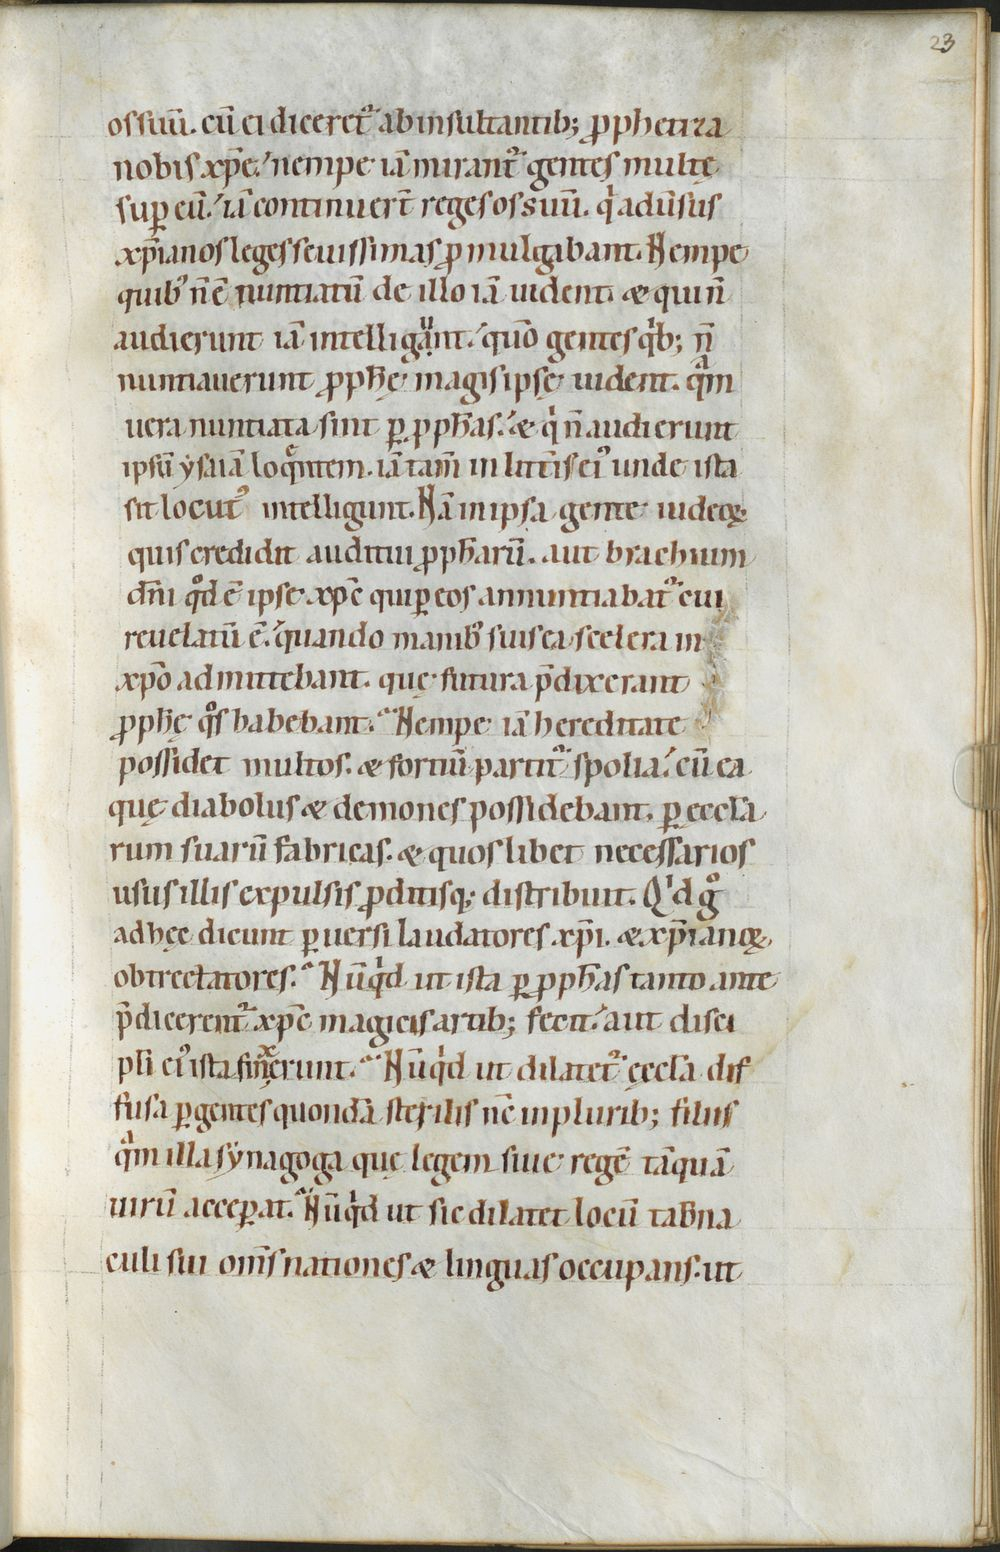 23
os suū. cū ei diceret᷑ ab insultantib; ꝓphetiza
nobis xp̄e.' nempe iā mirant᷑ gentes multę
sup̱ eū.' iā continuer̄t reges os suū. qͥ adūsus
xp̄ianos leges seuissimas ꝓmulgabant. Nempe
quib' n̄ ē nuntiatū de illo iā uident. & qui n̄
audierunt iā intelligunt.' quō gentes qͥb; n̄
nuntiauerunt ꝓph̄ę magis ipsę uident. qͣm
uera nuntiata sint ꝑ ꝓph̄as.' & qͥ n̄ audierunt
ipsū ysaiā loqͤntem. iā tam̄ in litt̄is ei' unde ista
sit locut' intelligunt. Nā in ipsa gente iudeoꝝ
quis credidit auditui ꝓph̄arū. aut brachium
dn̄i qͦd ē ipse xp̄c qui ꝑ eos annuntiabat᷑ cui
reuelatū ē.' quando manib' suis ea scelera in
xp̄o admittebant. quę futura p̄dixerant
ꝓph̄ę qͦs habebant. Nempe iā hereditate
possidet multos. & fortiū partit᷑ spolia.' cū ea
quę diabolus & demones possidebant. ꝑ ęccl̄a
rum suarū fabricas. & quoslibet necessarios
usus illis expulsis ꝓditisq; distribuit. Qͥd gͦ
ad hęc dicunt ꝑuersi laudatores xp̄i. & xp̄ianoꝝ
obtrectatores. Nūqͥd ut ista ꝑ ꝓph̄as tanto ante
p̄dicerent᷑ xp̄c magicis artib; fecit.' aut disci
pli ei' ista finxerunt. Nūqͥd ut dilatet᷑ ęccl̄a dif
fusa ꝑ gentes quondā sterilis nc̄ in plurib; filiis
qͣm illa synagoga quę legem siue regē tāquā
uirū acceꝑat. Nūqͥd ut sic dilatet locū tab̄na
culi sui om̄s nationes & linguas occupans. ut